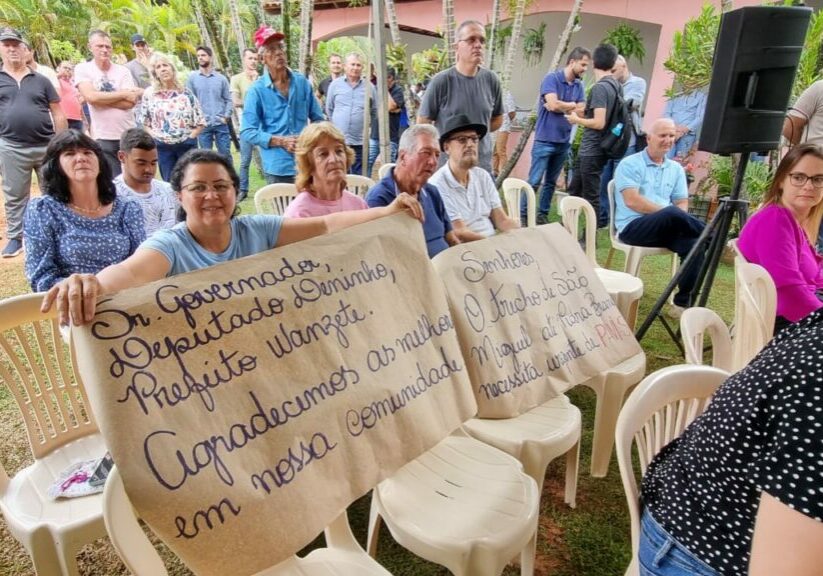 Sr. Governador,
Deputado Deninho,
Prefeito Wanzete.
Agradecemos as melhor
em nossa comunidade
Senhores,
O trecho de São
Miguel até Pedra Bran
necessita urgente de PMAS